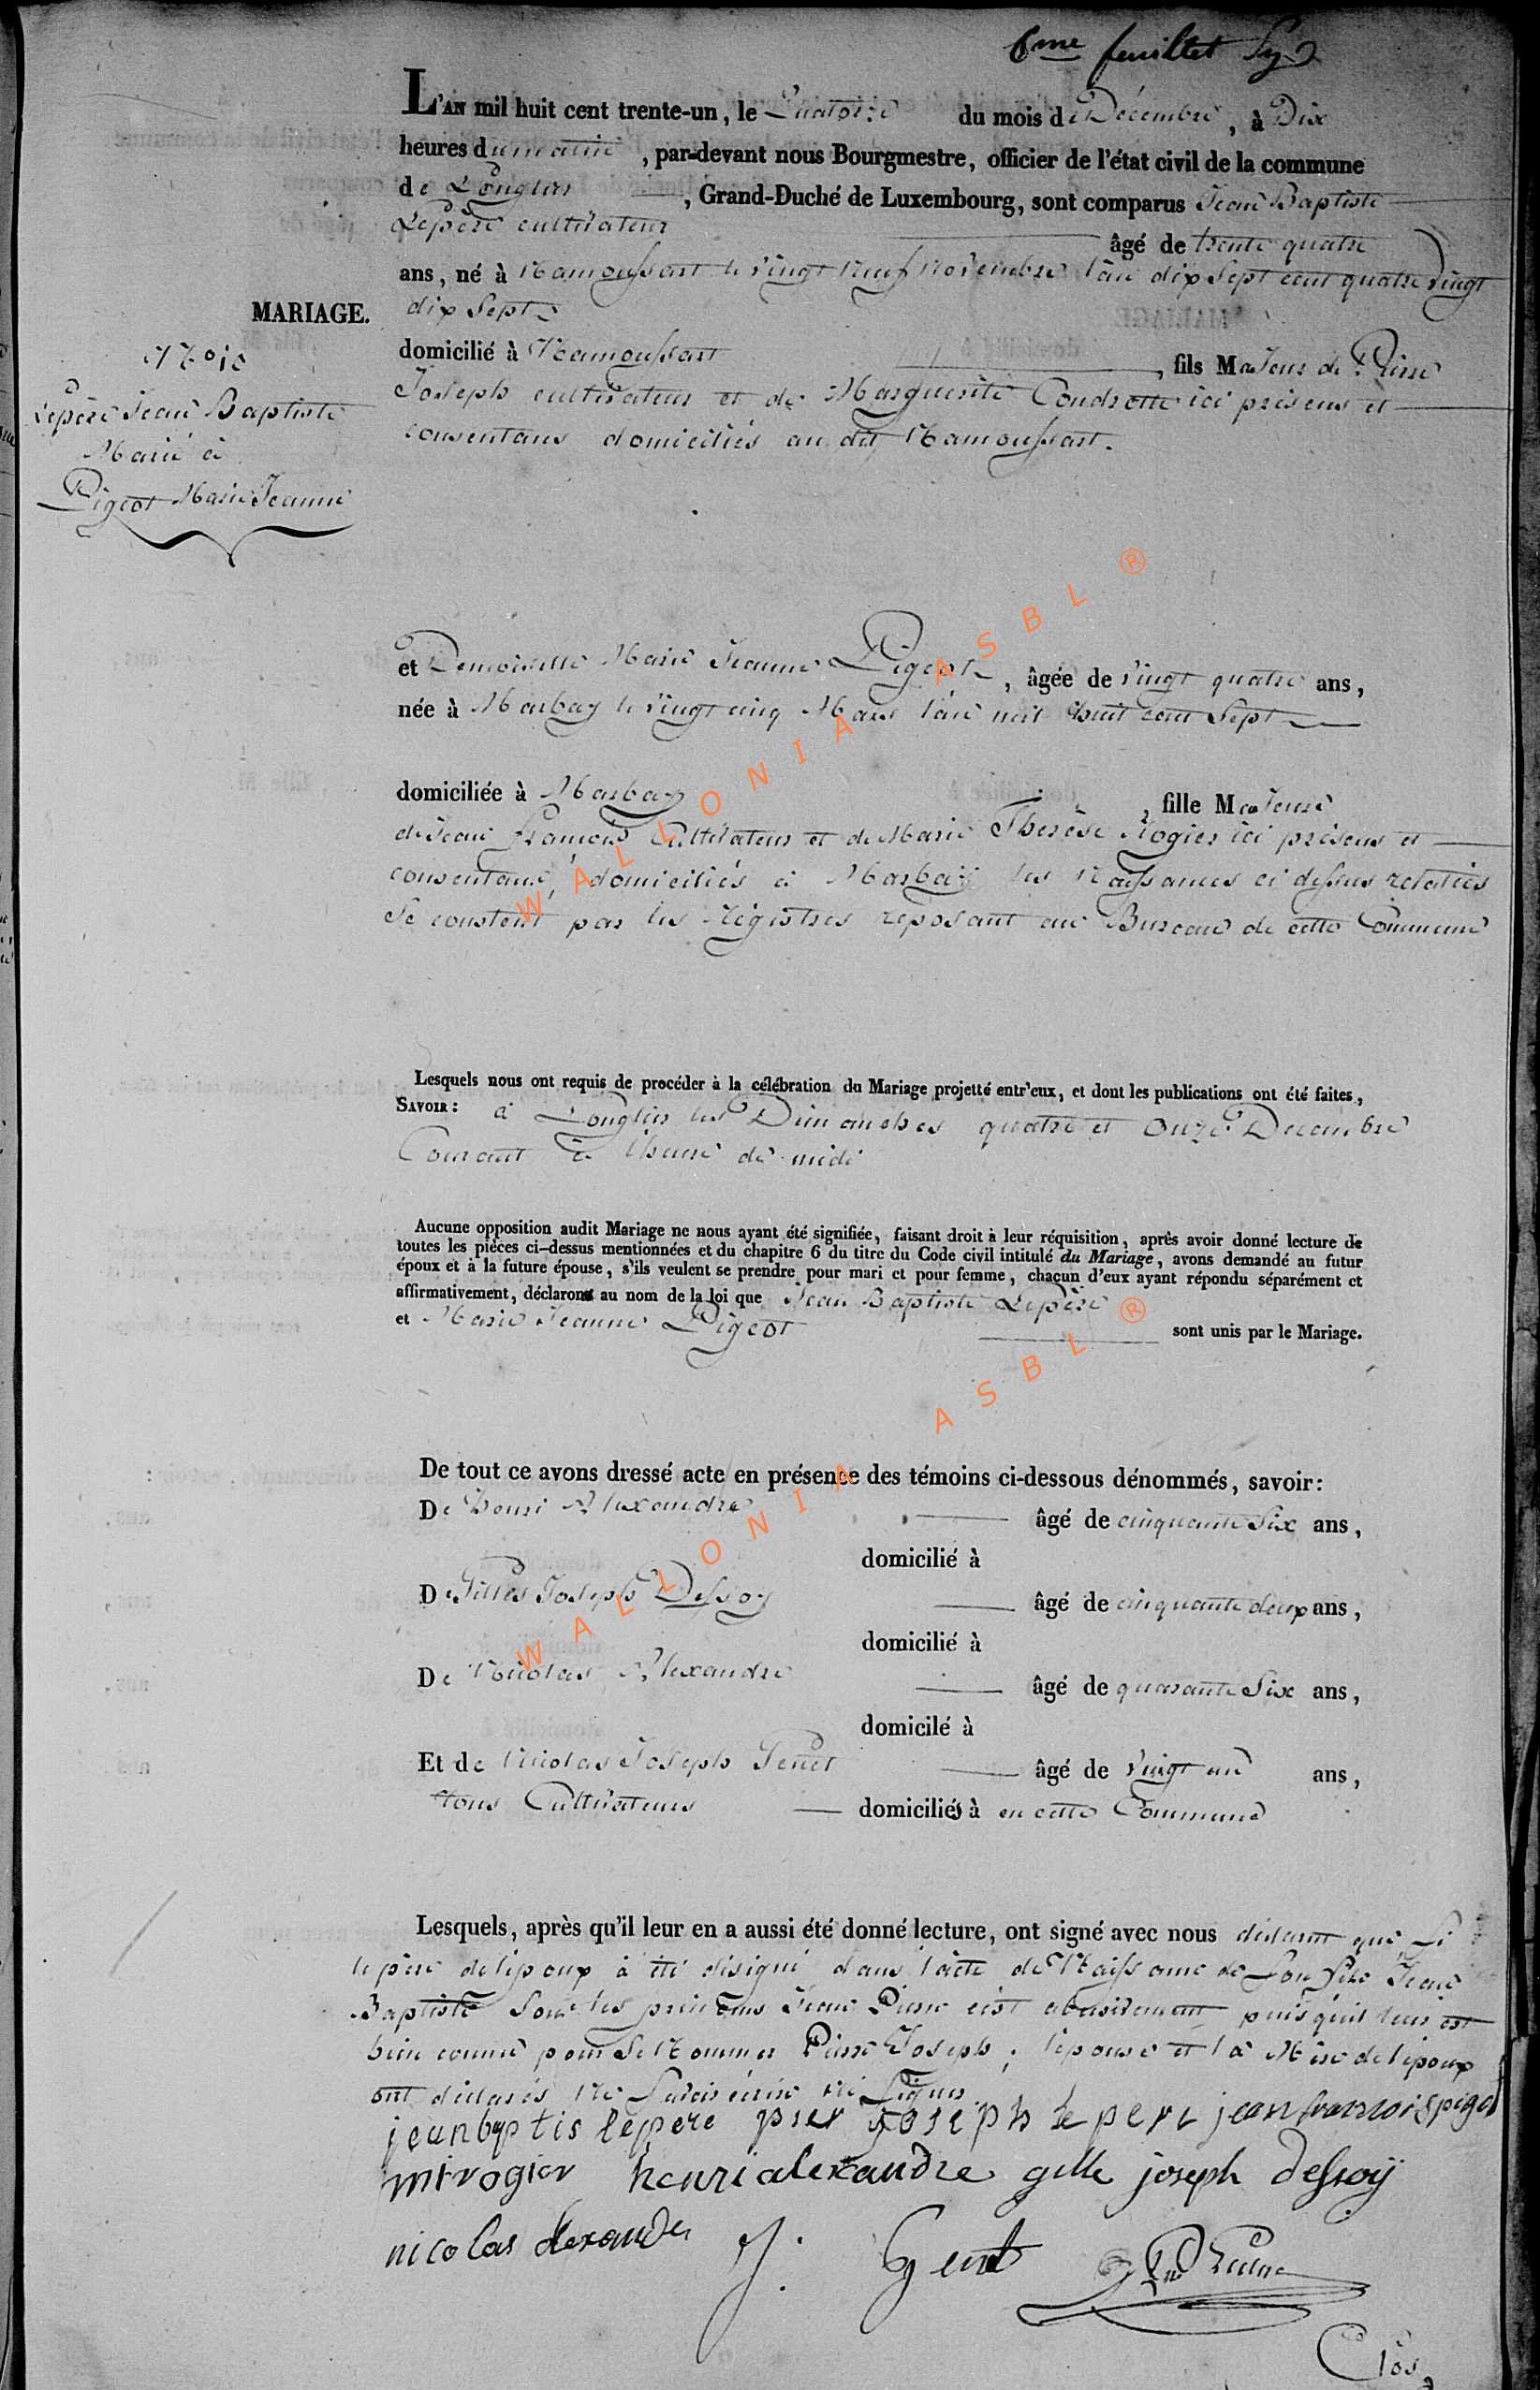 6me feuillet
L'AN mil huit cent trente-un, le Quatorze du mois de Décembre, à Dix
heures du matin, par-devant nous Bourgmestre, officier de l'état civil de la commune
de Longlier, Grand-Duché de Luxembourg, sont comparus Jean Baptiste
Lepère cultivateur âgé de trente quatre
ans, né à Namoussart le vingt neuf Novembre l'an dix sept cent quatre vingt
dix sept
domicilié à Namoussart, fils Majeur de Pierre
Joseph cultivateur et de Marguerite Condrotte ici présens et
consentans domiciliés au dit Namoussart.
MARIAGE.
Lepère Jean Baptiste
Marié à
Pigeot Marie Jeanne
et Demoiselle Marie Jeanne Pigeot, âgée de vingt quatre ans,
née à Marbay le vingt cinq Mars l'an mil huit cent sept
domiciliée à Marbay, fille Majeure
de Jean François Cultivateur et de Marie Therèse Rogier ici présens et
consentans, domiciliés à Marbay les Naissances ci dessus relatées
se constent par les régistres reposant au Bureau de cette Commune
Lesquels nous ont requis de procéder à la célébration du Mariage projetté entr'eux, et dont les publications ont été faites,
SAVOIR : à Longlier les Dimanches quatre et onze Decembre
Courant à l'heure de midi
Aucune opposition audit Mariage ne nous ayant été signifiée, faisant droit à leur réquisition, après avoir donné lecture de
toutes les pièces ci-dessus mentionnées et du chapitre 6 du titre du Code civil intitulé du Mariage, avons demandé au futur
époux et à la future épouse, s'ils veulent se prendre pour mari et pour femme, chacun d'eux ayant répondu séparément et
affirmativement, déclarons au nom de la loi que Jean Baptiste Lepère
et Marie Jeanne Pigeot sont unis par le Mariage.
De tout ce avons dressé acte en présence des témoins ci-dessous dénommés, savoir :
De Henri Alexandre âgé de cinquante six ans,
domicilié à
De Gilles Joseph Dessoy âgé de cinquante deux ans,
domicilié à
De Nicolas Alexandre âgé de quarante six ans,
domicilé à
Et de Nicolas Joseph Genet âgé de vingt un ans,
tous Cultivateurs domiciliés à en cette Commune
Lesquels, après qu'il leur en a aussi été donné lecture, ont signé avec nous déclarant que si
le père de l'epoux à été désigné dans l'acte de Naissance de son fils Jean
Baptiste sous les prénoms Jean Pierre c'est abusivement puisqu'il leur est
bien connu pour se Nommer Pierre Joseph ; l'epouse et la Mère de l'epoux
ont déclarés Ne Savoir écrire Ni Signer
jeanbaptis lepere pier joseph le pere jeanfrancois pigot
mt rogier henri alexandre gille joseph dessoÿ
nicolas alexandre J. Genet
Clos
WALLONIA ASBL ®
WALLONIA ASBL ®